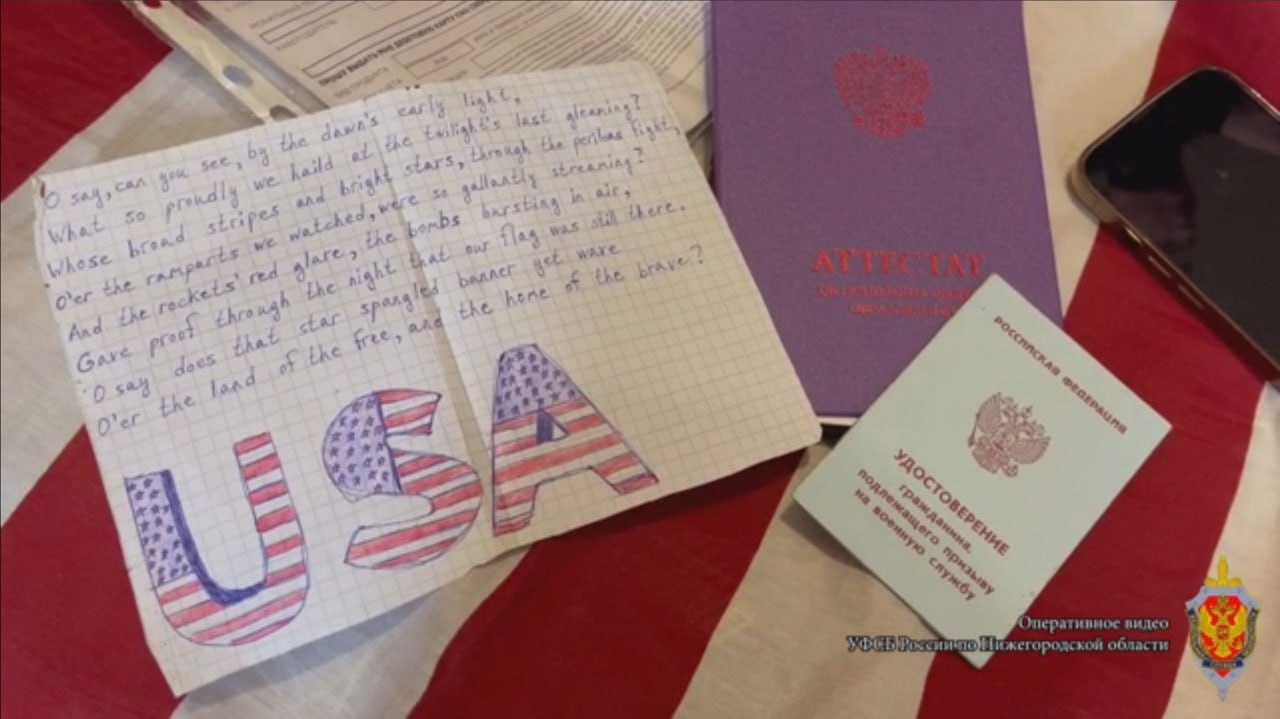 ПРОШУ ВЫДАТЬ МНЕ
O say, can you see, by the dawn's early light,
What so proudly we haild at the twilight's last gleaming?
Whose broad stripes and bright stars, through the perilous fight,
O'er the ramparts we watched, were so gallantly streaming?
And the rockets' red glare, the bombs bursting in air,
Gave proof through the night that our flag was still there.
O say does that star spangled banner yet wave
O'er the land of the free, and the home of the brave?
USA
АТТЕСТАТ
РОССИЙСКАЯ ФЕДЕРАЦИЯ
УДОСТОВЕРЕНИЕ
гражданина,
подлежащего призыву
на военную службу
Оперативное видео
УФСБ России по Нижегородской области